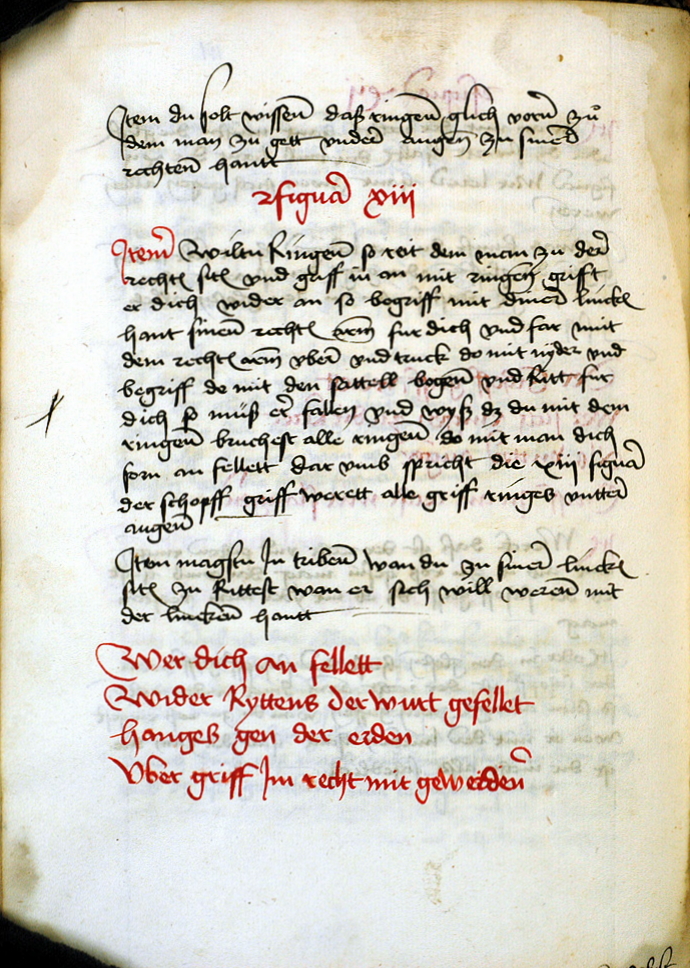 Item du solt wissen daß ringen glich vorn zů
dem man zu gett vnder augen zu siner
rechten hantt
figura xiii
Item Wiltu Ringen so reit dem man zu der
rechten siten vnd griff in an mit ringen grifft
er dich wider an so begriff mit diner lincken
hant sinen rechten arm fur dich vnd far mit
dem rechten arm vber vnd truck do mit nyder vnd
begriff do mit den sattell bogen vnd Ritt fur
dich so můß er fallen vnd wyß dz du mit dem
ringen bruchest alle ringen do mit man dich
forn an fellett dar vmb spricht die xiii figura
der schopff griff werett alle griff ringes vntter
augen
Item magstu In triben wan du zu siner lincken
siten zu Rittest wan er sich will weren mit
der lincken hantt
Wer dich an fellett
Wider Ryttens der wirt gefellet
hanges gen der erden
Vber griff Im recht mit geweiden